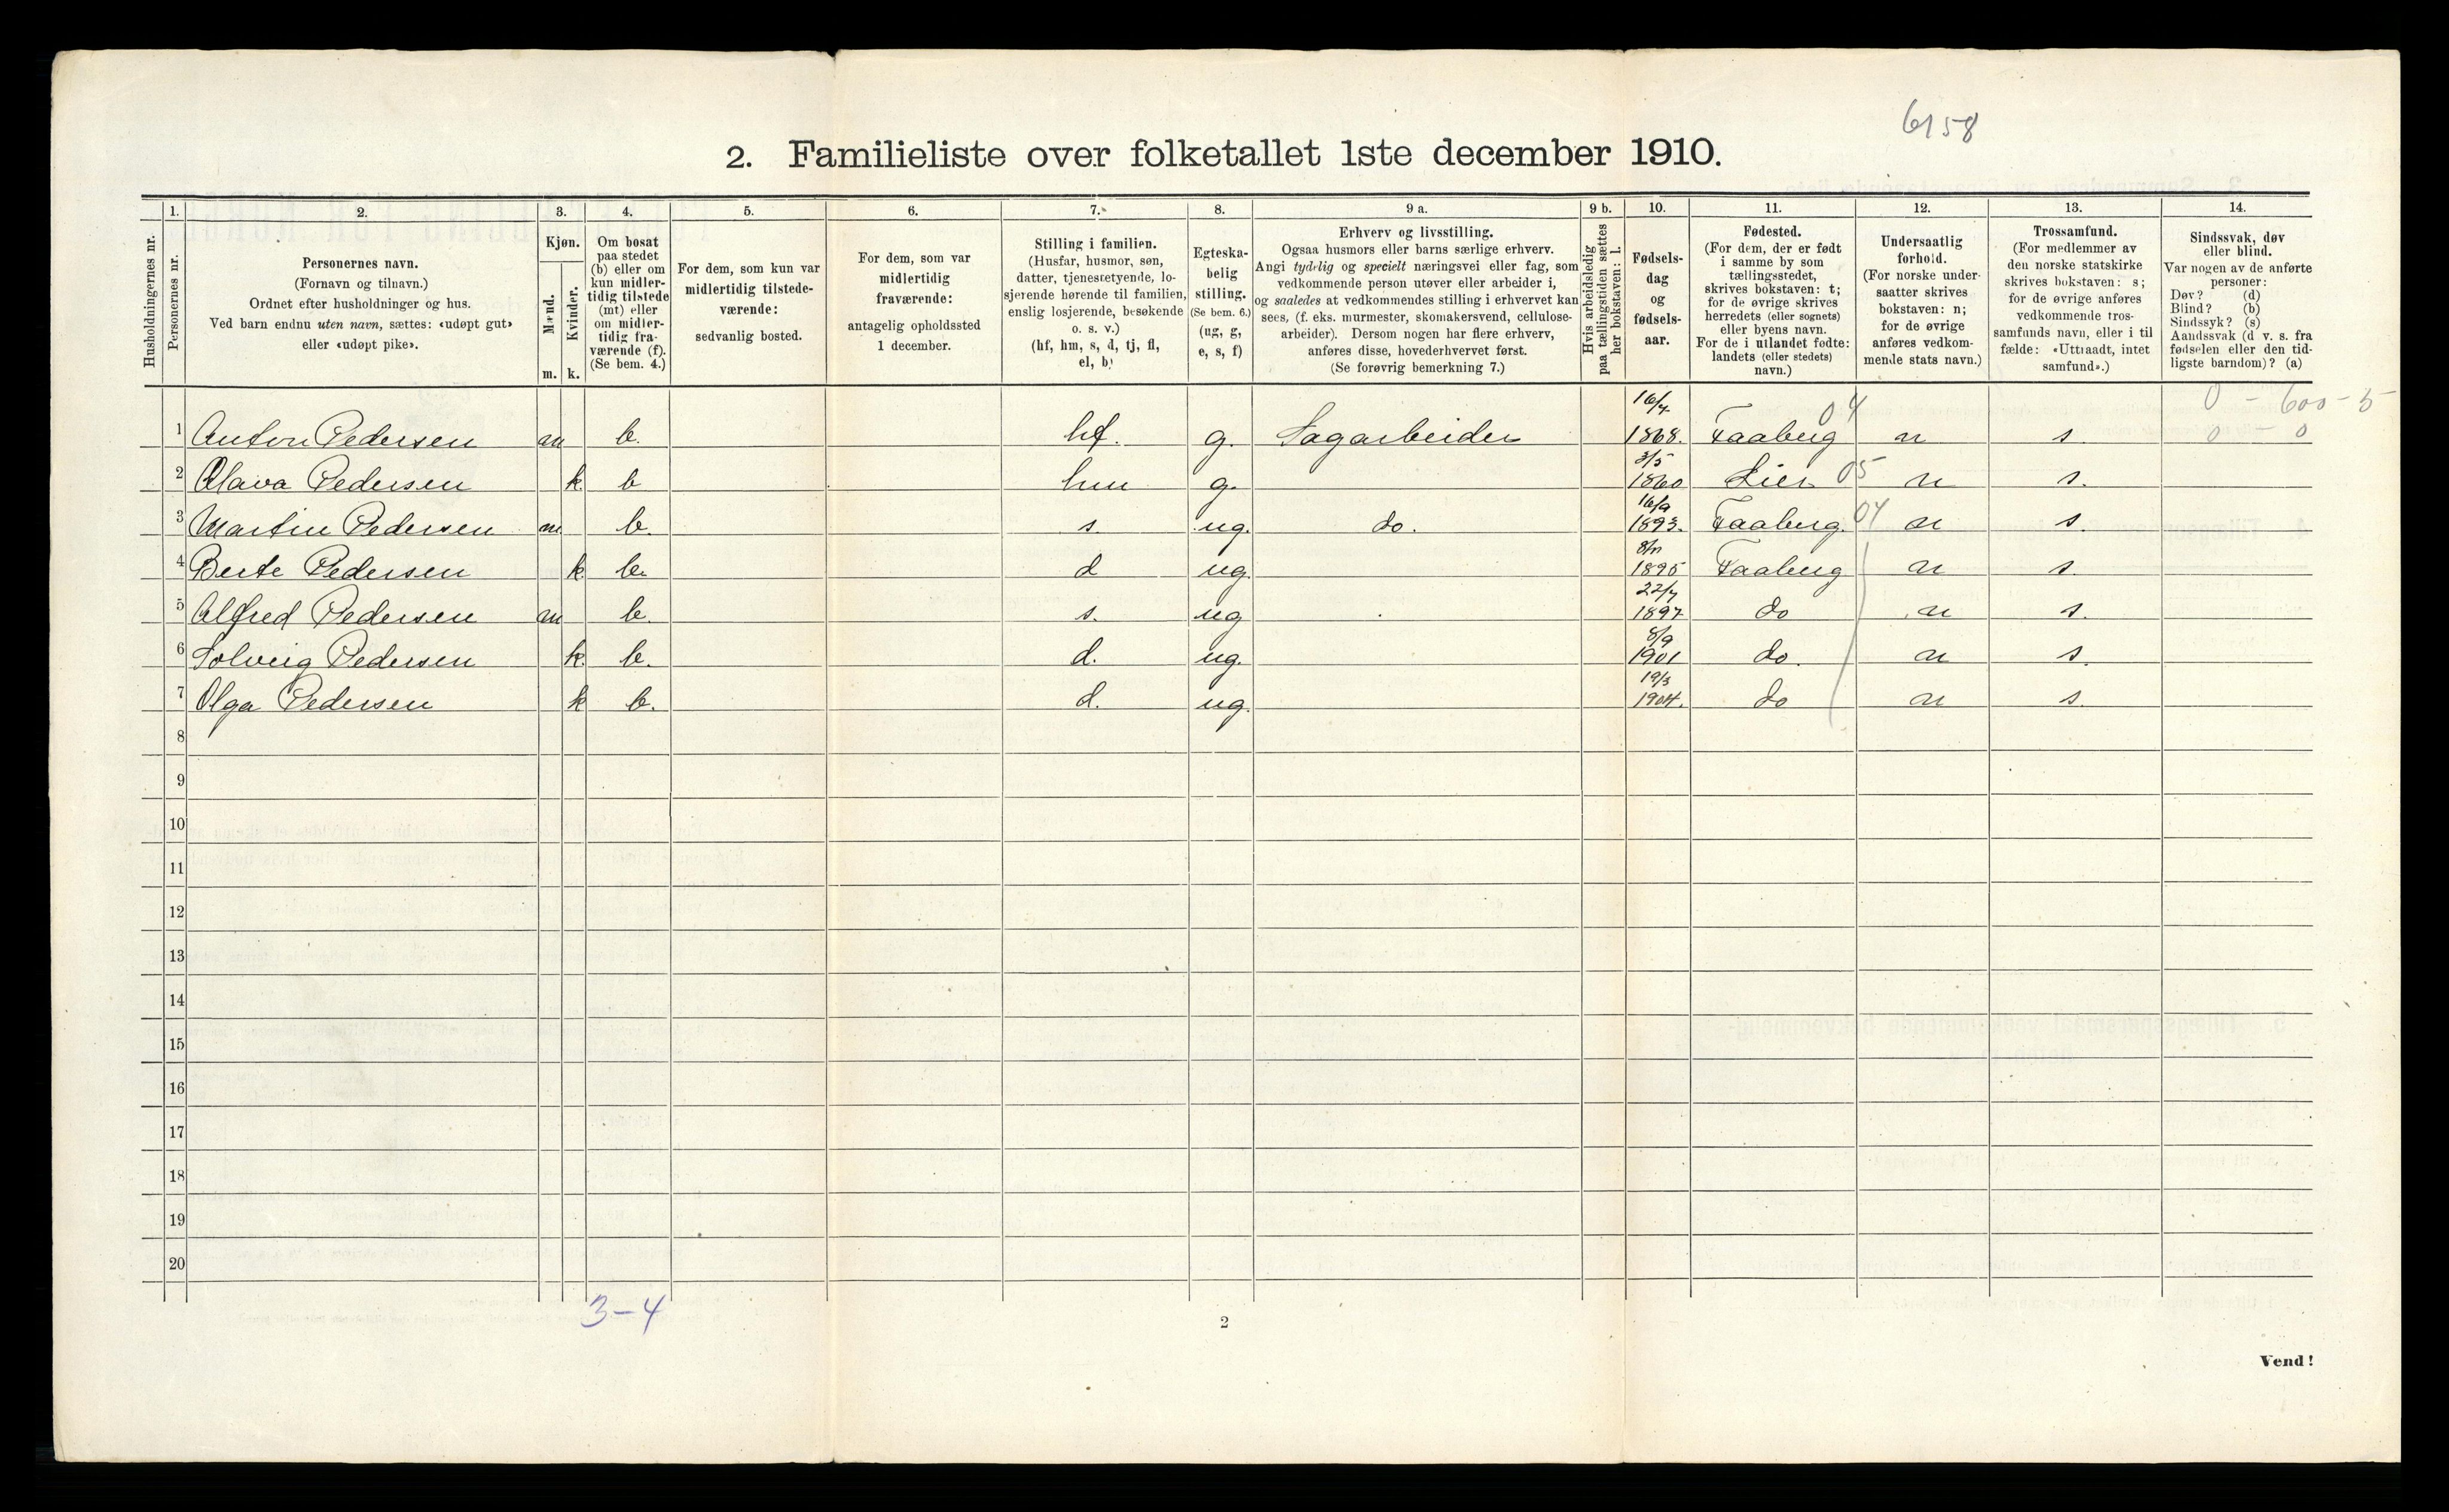 6158
2. Familieliste over folketallet 1ste december 1910.
1. 2. 3. 4. 5. 6. 7. 8. 9 a. 9 b. 10. 11. 12. 13. 14.
Husholdningernes nr.
Personernes nr.
Personernes navn.
(Fornavn og tilnavn.)
Ordnet efter husholdninger og hus.
Ved barn endnu uten navn, sættes: «udøpt gut»
eller «udøpt pike».
Kjøn.
Mænd.
Kvinder.
m. k.
Om bosat
paa stedet
(b) eller om
kun midler-
tidig tilstede
(mt) eller
om midler-
tidig fra-
værende (f).
(Se bem. 4.)
For dem, som kun var
midlertidig tilstede-
værende:
sedvanlig bosted.
For dem, som var
midlertidig
fraværende:
antagelig opholdssted
1 december.
Stilling i familien.
(Husfar, husmor, søn,
datter, tjenestetyende, lo-
sjerende hørende til familien,
enslig losjerende, besøkende
o. s. v.)
(hf, hm, s, d, tj, fl,
el, b)
Egteska-
belig
stilling.
(Se bem. 6.)
(ug, g,
e, s, f)
Erhverv og livsstilling.
Ogsaa husmors eller barns særlige erhverv.
Angi tydelig og specielt næringsvei eller fag, som
vedkommende person utøver eller arbeider i,
og saaledes at vedkommendes stilling i erhvervet kan
sees, (f. eks. murmester, skomakersvend, cellulose-
arbeider). Dersom nogen har flere erhverv,
anføres disse, hovederhvervet først.
(Se forøvrig bemerkning 7.)
Hvis arbeidsledig
paa tællingstiden sættes
her bokstaven: l.
Fødsels-
dag
og
fødsels-
aar.
Fødested.
(For dem, der er født
i samme by som
tællingsstedet,
skrives bokstaven: t;
for de øvrige skrives
herredets (eller sognets)
eller byens navn.
For de i utlandet fødte:
landets (eller stedets)
navn.)
Undersaatlig
forhold.
(For norske under-
saatter skrives
bokstaven: n;
for de øvrige
anføres vedkom-
mende stats navn.)
Trossamfund.
(For medlemmer av
den norske statskirke
skrives bokstaven: s;
for de øvrige anføres
vedkommende tros-
samfunds navn, eller i til
fælde: «Uttraadt, intet
samfund».)
Sindssvak, døv
eller blind.
Var nogen av de anførte
personer:
Døv? (d)
Blind? (b)
Sindssyk? (s)
Aandssvak (d v. s. fra
fødselen eller den tid-
ligste barndom)? (a)
0 - 600 - 5
1 Anton Pedersen m b. hf. g. Sagarbeider 16/4 1868. Faaberg 04 n s. 0 - 0
2 Olava Pedersen k b hm g. 3/5 1860 Lier 05 n s.
3 Martin Pedersen m b. s. ug. do. 16/9 1893. Faaberg. 04 n s.
4 Berte Pedersen k b. d ug. 8/11 1895 Faaberg n s.
5 Alfred Pedersen m b. s. ug 22/7 1897 do n s.
6 Solveig Pedersen k. b. d. ug. 8/9 1901 do. n s.
7 Olga Pedersen k b. d. ug. 19/3 1904. do n s.
8
9
10
11
12
13
14
15
16
17
18
19
20
3-4
2
Vend!